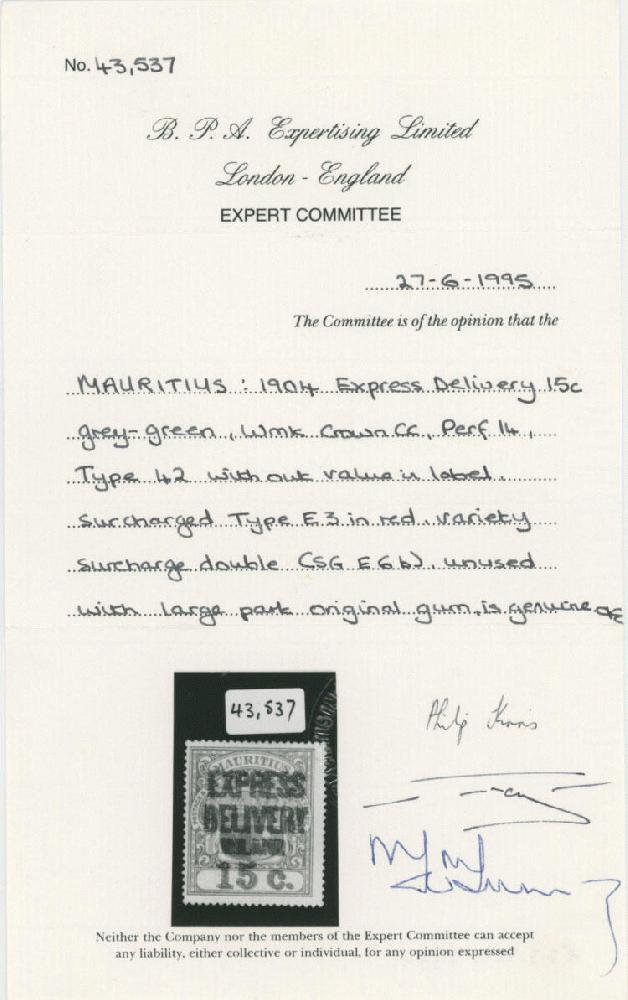 No. 43,537
B. P. A. Expertising Limited
London - England
EXPERT COMMITTEE
27-6-1995
The Committee is of the opinion that the
MAURITIUS : 1904 Express Delivery 15c
grey-green, Wmk Crown CC, Perf 14,
Type 42 without value in label.
Surcharged Type E3 in red, variety
surcharge double (SG E6b), unused
with large part original gum, is genuine
43,537
MAURITIUS
EXPRESS
DELIVERY
INLAND
15 c.
Neither the Company nor the members of the Expert Committee can accept
any liability, either collective or individual, for any opinion expressed